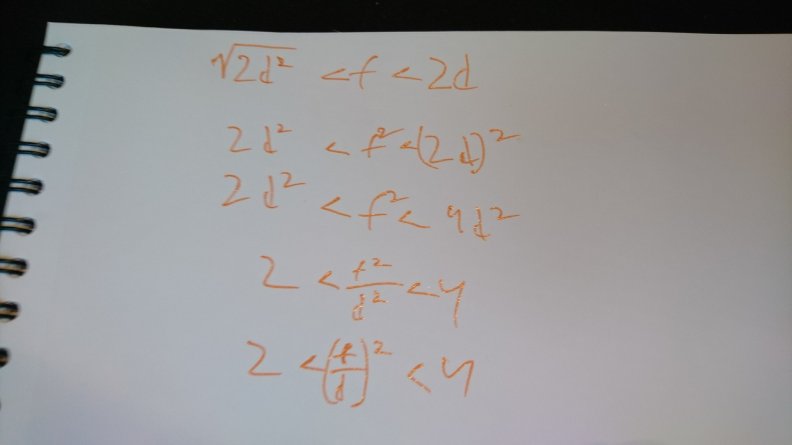 √2d² < f < 2d
2d² < f² < (2d)²
2d² < f² < 4d²
2 < f²/d² < 4
2 < (f/d)² < 4